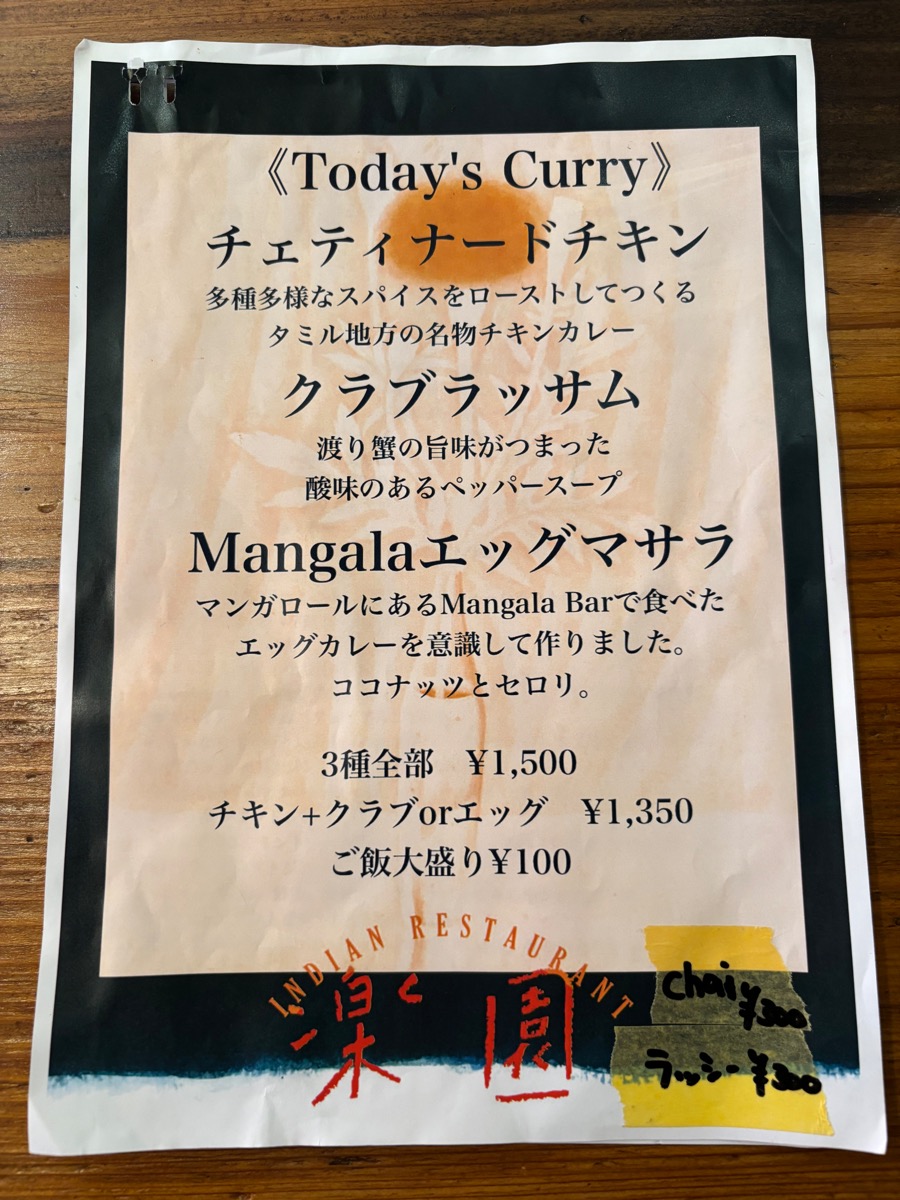 《Today's Curry》
チェティナードチキン
多種多様なスパイスをローストしてつくる
タミル地方の名物チキンカレー
クラブラッサム
渡り蟹の旨味がつまった
酸味のあるペッパースープ
Mangalaエッグマサラ
マンガロールにあるMangala Barで食べた
エッグカレーを意識して作りました。
ココナッツとセロリ。
3種全部　¥1,500
チキン+クラブorエッグ　¥1,350
ご飯大盛り¥100
INDIAN RESTAURANT
楽園
chai ¥300
ラッシー ¥300